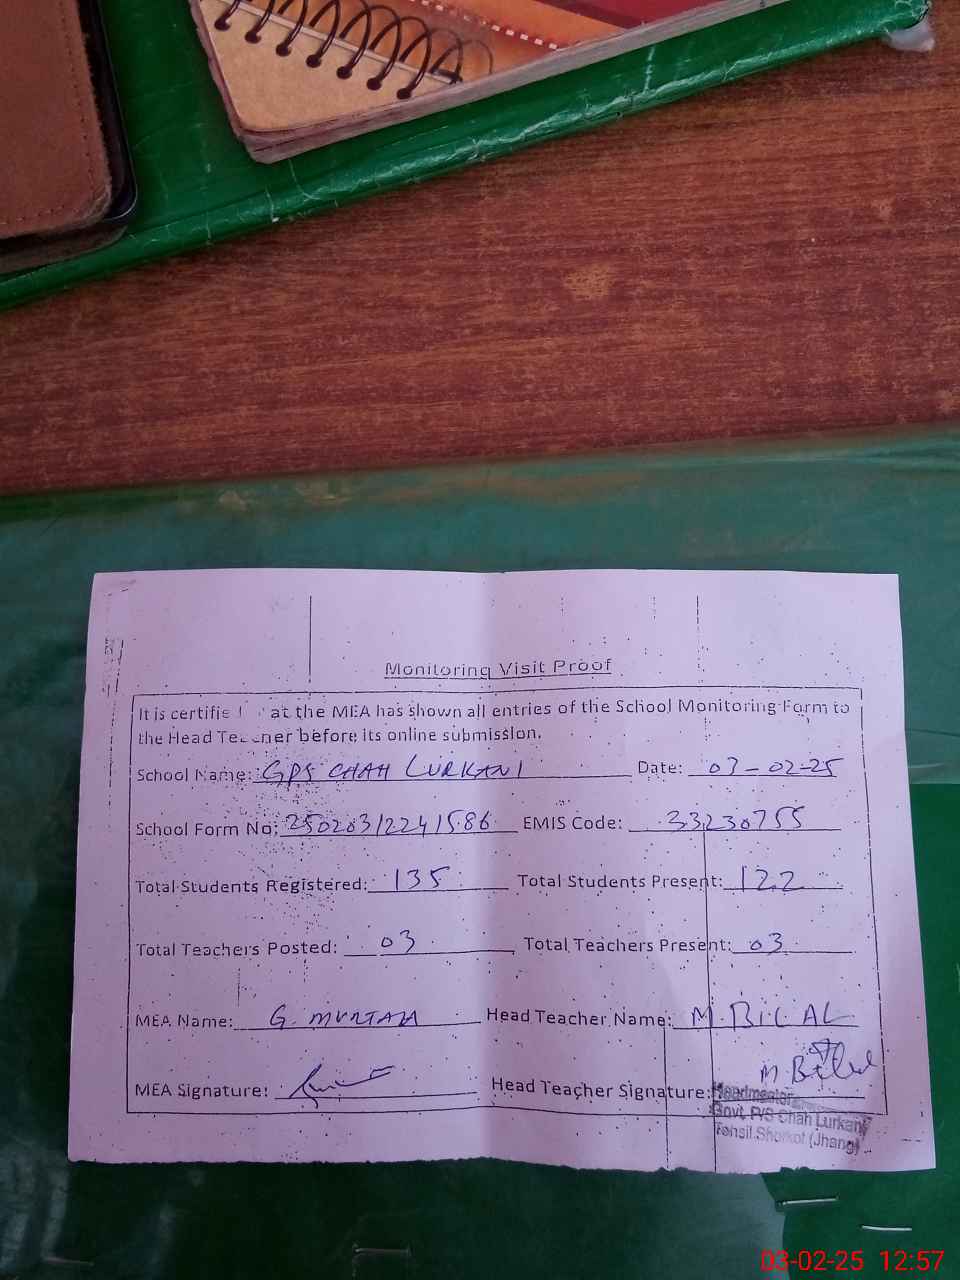 Monitoring Visit Proof
It is certifie at the MEA has shown all entries of the School Monitoring Form to
the Head Teacher before its online submission.
School Name: GPS CHAH LURKANI Date: 03-02-25
School Form No: 250203122241586 EMIS Code: 33230755
Total Students Registered: 135 Total Students Present: 122
Total Teachers Posted: 03 Total Teachers Present: 03
MEA Name: G. MURTAZA Head Teacher Name: M. BILAL
MEA Signature: Head Teacher Signature: M. Bilal
Headmaster
Govt. P/S Chah Lurkani
Tehsil Shorkot (Jhang)
03-02-25 12:57